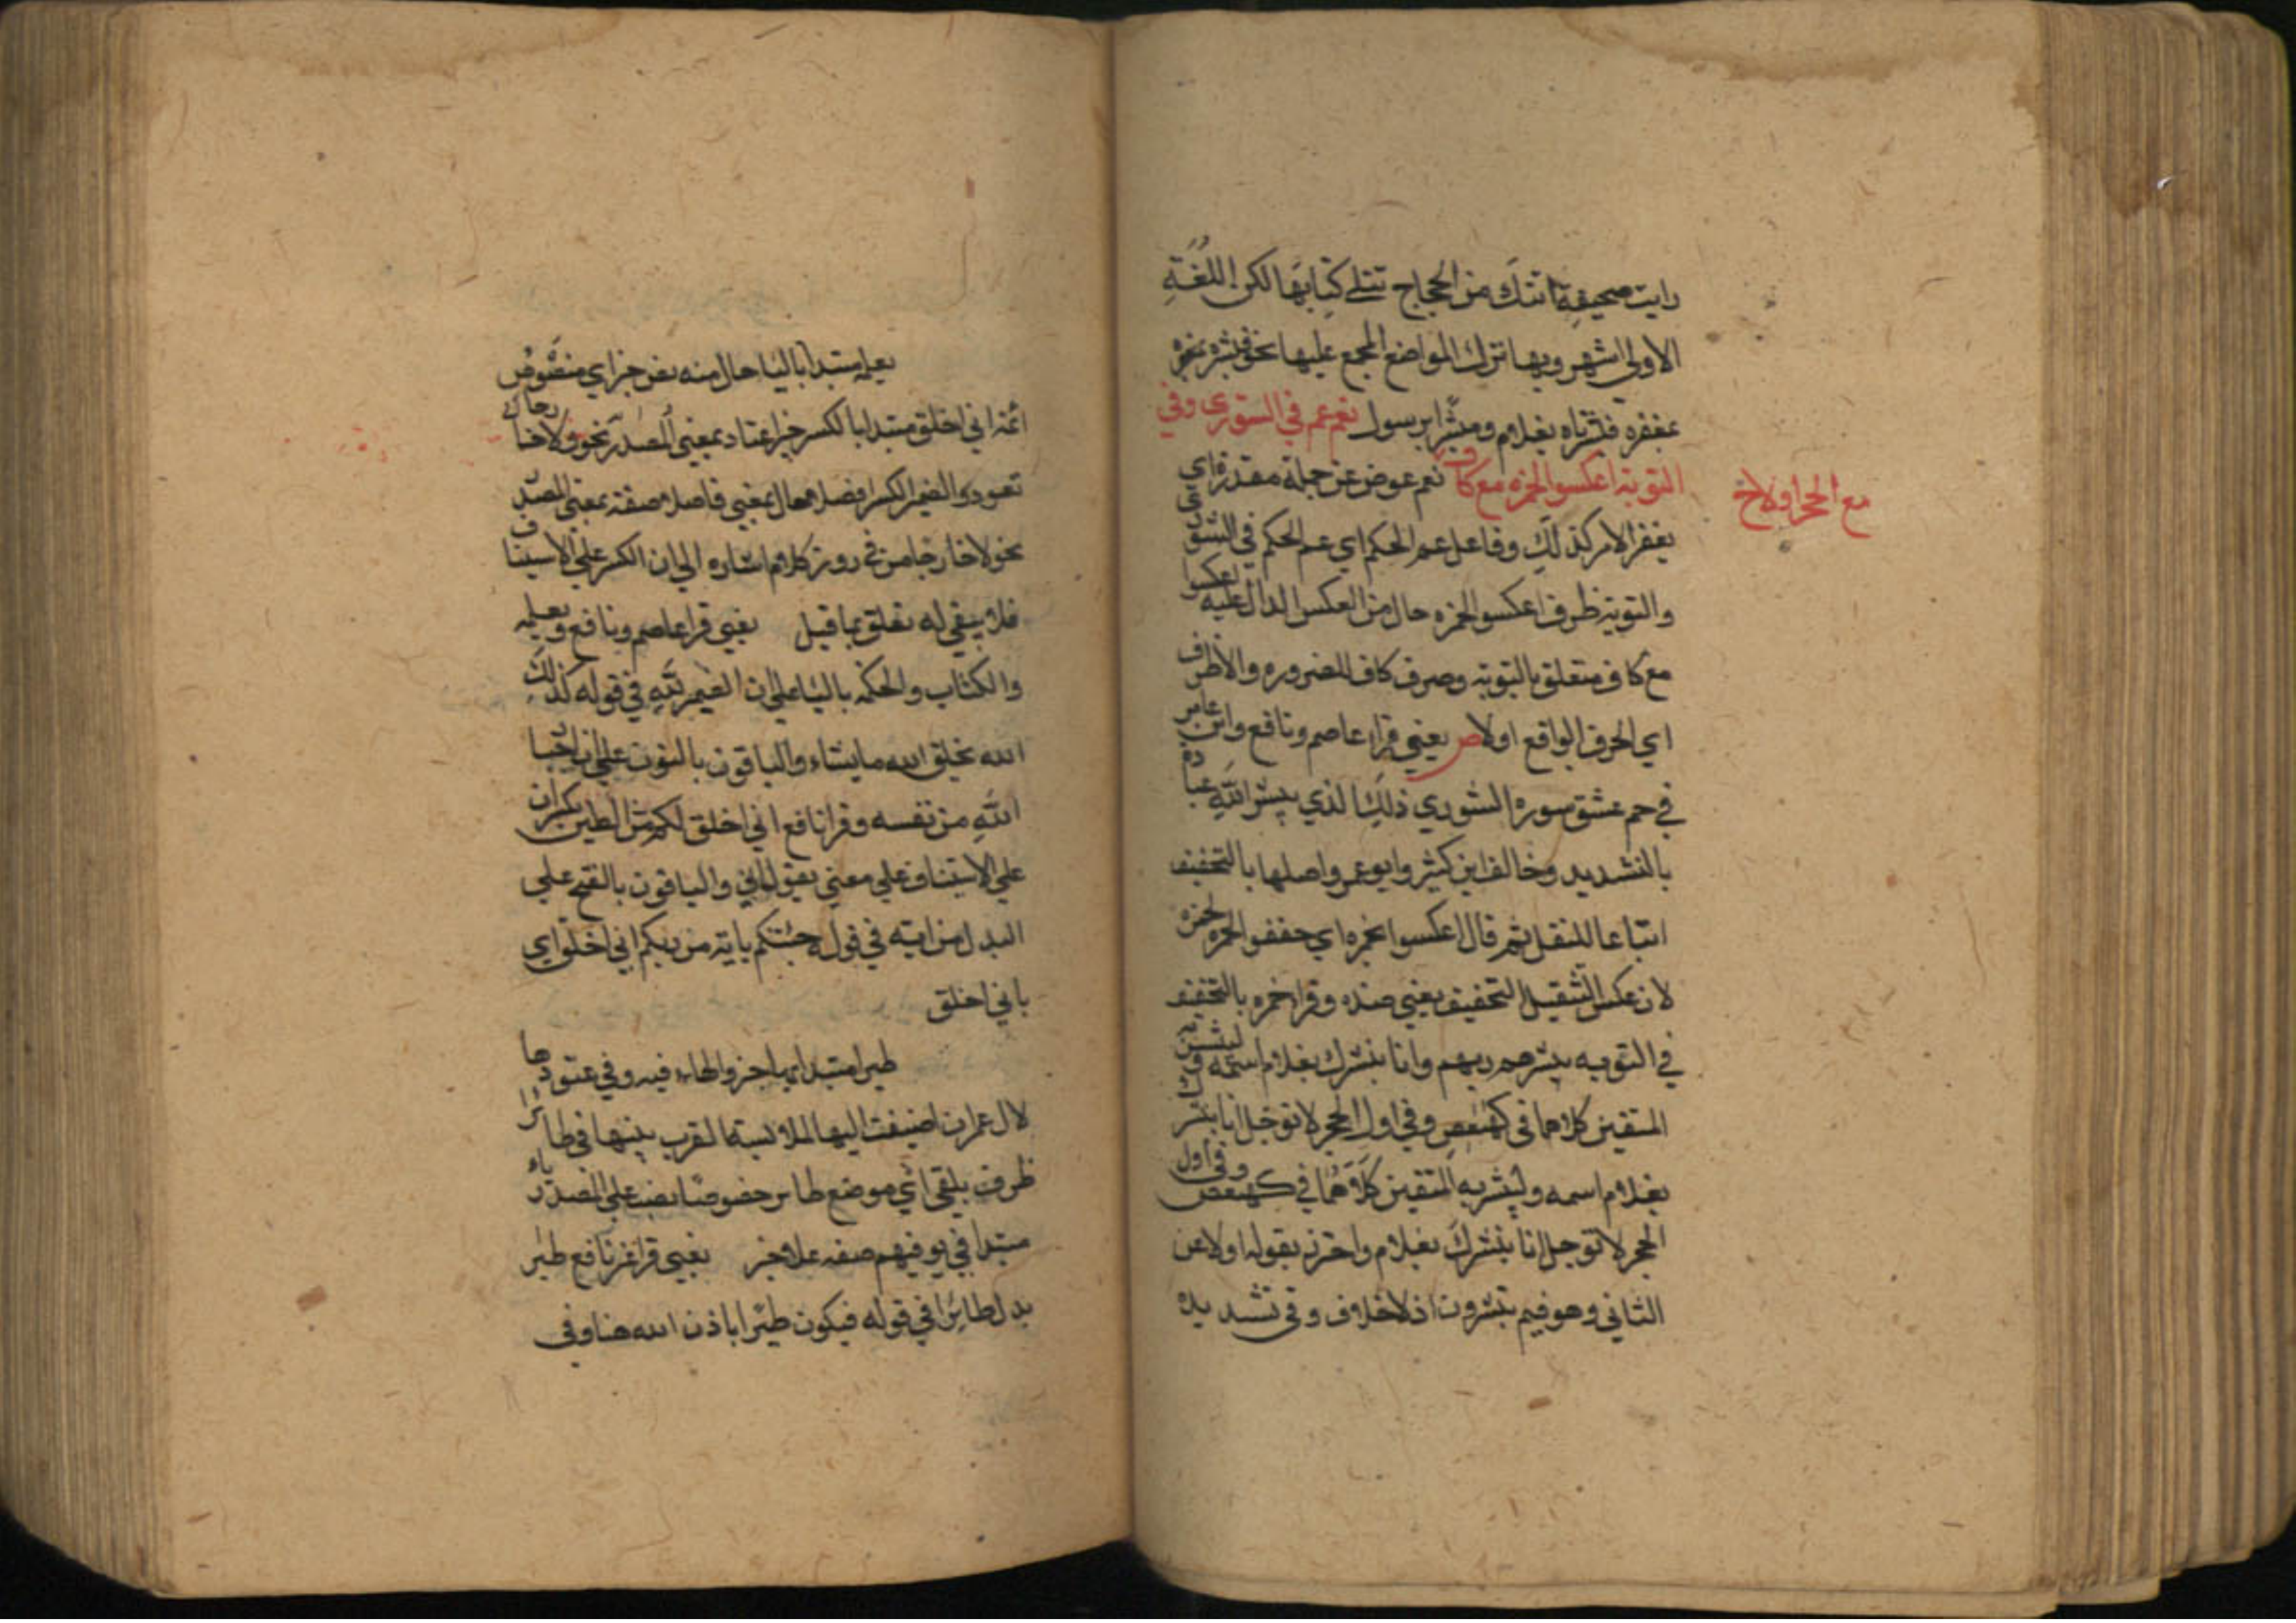 رايت صحيفة اتتك من الحجاج تتلى كتابها لكن اللغة
الاولى اشهر وبها نزل المواضع المجمع عليها نحو فبشره
بمغفرة فبشرناه بغلام ومبشرا برسول نعم عم في الشورى وفي
التوبة اعكسوا لحمزة مع كاف نعم عوض عن جملة مقدرة اي
مع الحجر اولا
يغفر الامر كذلك وفاعل عم الحكم اي عم الحكم في الشورى
والتوبة ظرف اعكسوا لحمزة حال من العكس الدال عليه اعكسوا
مع كاف متعلق بالتوبة وصرف كاف للضرورة والاظرف
اي الحرف الواقع اولا ص يعني قرا عاصم ونافع وابن عامر
في حم عسق سورة الشوري ذلك الذي يبشر الله عباده
بالتشديد وخالف ابن كثير وابو عمر واصلها بالتخفيف
اتباعا للنقل ثم قال اعكسوا لحمزة اي خففوا لحمزة
لان عكس التثقيل التخفيف يعني ضده وقرا حمزه بالتخفيف
في التوبه يبشرهم ربهم وانا نبشرك بغلام اسمه و لتبشر به
المتقين كلاهما في كهيعص وفي اول الحجر لا توجل انا نبشرك
بغلام اسمه ولتبشر به المتقين كلاهما في كهيعص وفي اول
الحجر لا توجل انا نبشرك بغلام واحترز بقوله اولا عن
الثاني وهو فبم تبشرون اذ لا خلاف وفي تشديده
يعلمه مبتدا باليا حال منه نص خبر اي منصوص
ائمة اني اخلق مبتدا بالكسر خبر اعتاد بمعني المصدر نحو ولا خارجا
تعود الضمير الكسر افصلا حال بمعني فاصلا صفة بمعني المصدر
نحو ولا خارجا من في زور كلام اشاره الي ان الكسر علي الاستيناف
فلا يبقي له تعلق بما قبل يعني قرا عاصم ونافع ويعلمه
والكتاب والحكمة باليا علي ان الضمير لله في قوله كذلك
الله يخلق الله ما يشاء والباقون بالنون علي ان اخبار
الله من نفسه وقرا نافع اني اخلق لكم من الطين بكسر ان
علي الاستيناف علي معني يقول اني والباقون بالفتح علي
البدل من اية في قوله جئتكم باية من ربكم اني اخلق اي
باني اخلق
طيرا مبتدا بها خبر والهاء فيه وفي عقودها
لال عمران اضيفت اليها الملابسة لقرب بينها في طائرا
ظرف يلقي اي موضع طائر خصوصا نصب علي المصدر ياء
مبتدا في يوفيهم صفه علا خبر يعني قرا غير نافع طيرا
بدل طائرا في قوله فيكون طيرا باذن الله هنا وفي